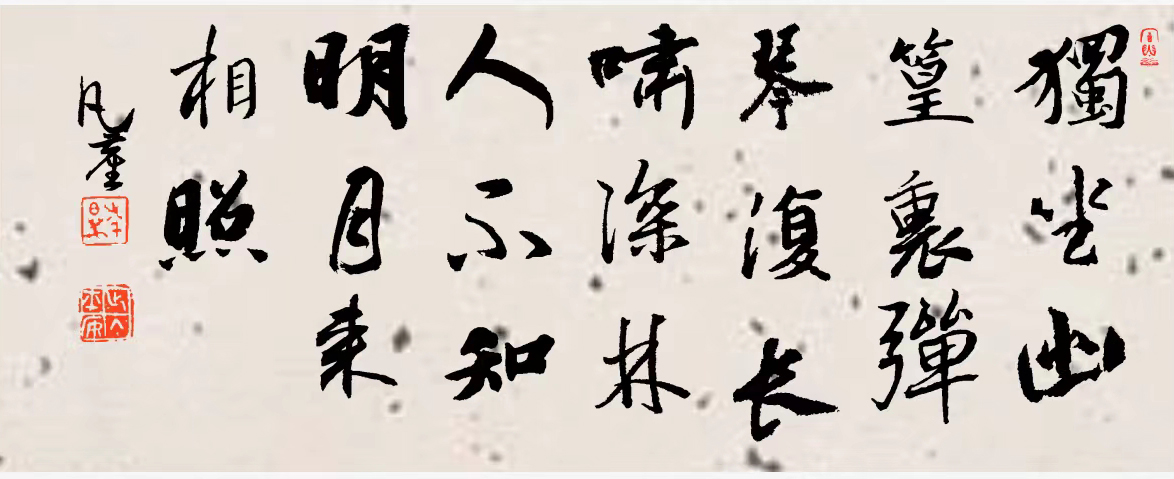 獨坐幽
篁裏彈
琴復长
啸深林
人不知
明月来
相照
凡墓